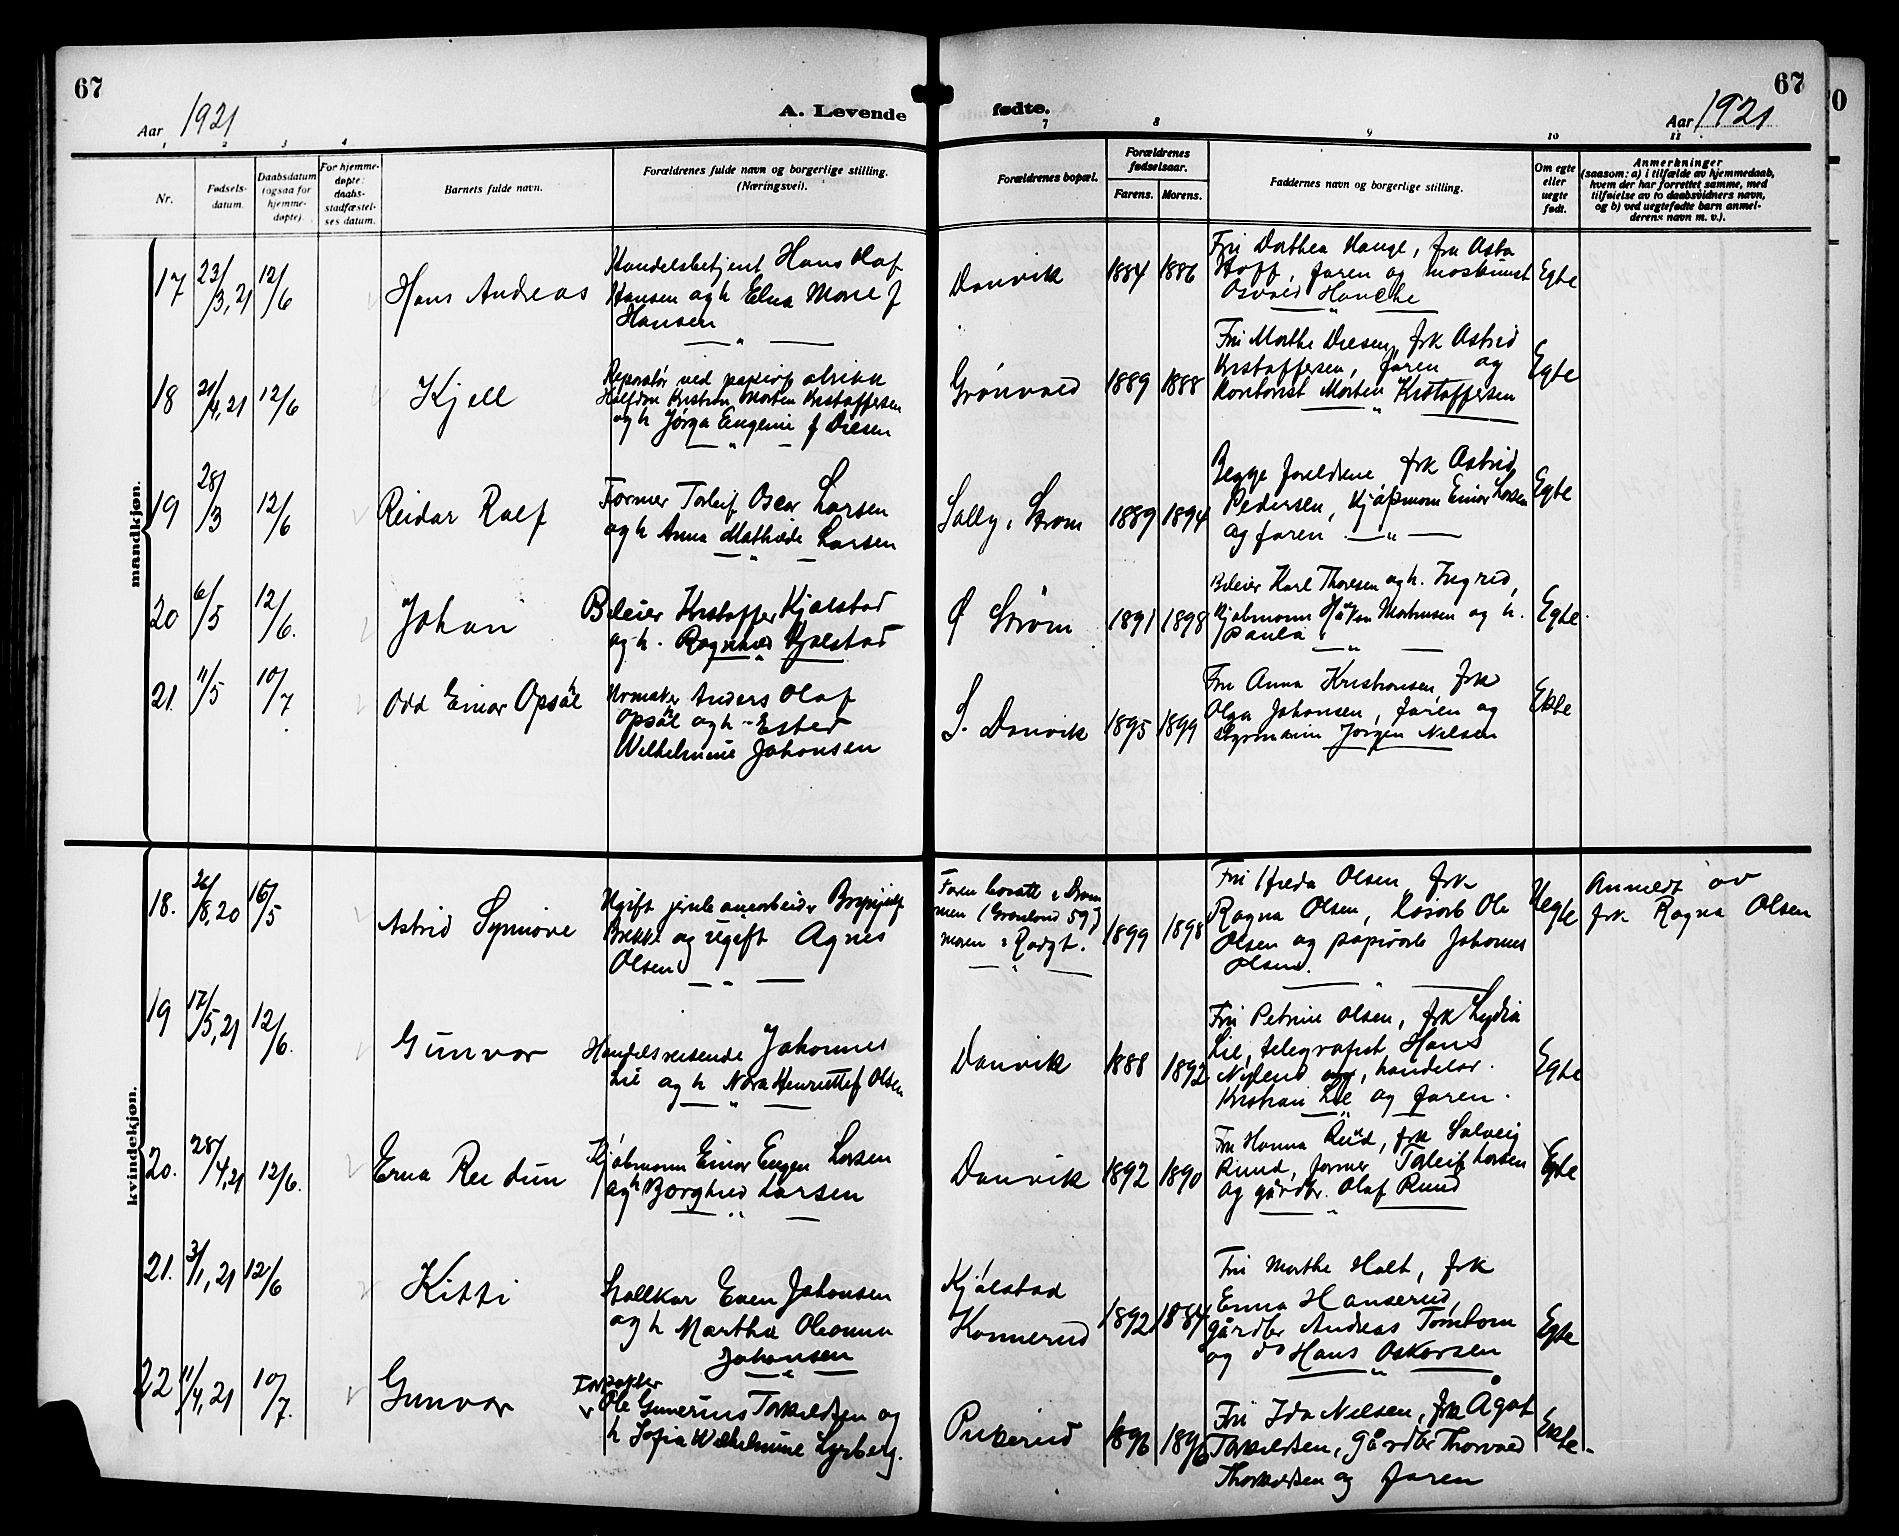 67
Aar 1921
A. Levende
fødte.
67
Aar 1921
1 2 3 4
7 8 9 10 11
Nr.
Fødsels-
datum.
Daabsdatum
(ogsaa for
hjemme-
døpte).
For hjemme-
døpte:
daabs-
stadfæstel-
ses datum.
Barnets fulde navn.
Forældrenes fulde navn og borgerlige stilling.
(Næringsvei).
Forældrenes bopæl.
Forældrenes
fødselsaar.
Farens. Morens.
Faddernes navn og borgerlige stilling.
Om egte
eller
uegte
født.
Anmerkninger
(saasom: a) i tilfælde av hjemmedaab,
hvem der har forrettet samme, med
tilføielse av to daabsvidners navn,
og b) ved uegtefødte barn anmel-
derens navn m. v.).
mandkjøn.
17
23/3, 21
12/6
Hans Andreas
Handelsbetjent Hans Olaf
Hansen og h Elna Marie f
Hansen
Danvik
1884 1886
Fru Dorthea Hauge, fru Asta
Hoff, faren og maskinist
Osvald Hanche
Egte
18
21/4, 21
12/6
Kjell
Reparatør ved papirfabrikk
Halfdan Kristian Morten Kristoffersen
og h Jørga Eugenie f Diesen
Grønvold
1889 1888
Fru Marthe Diesen, frk Astrid
Kristoffersen, faren og
kontorist Morten Kristoffersen
Egte
19
28/3
12/6
Reidar Ralf
Former Torleif Oscar Larsen
og h Anna Mathilde Larsen
Solly, Strøm
1889 1894
Begge foreldrene, frk Astrid
Pedersen, Kjøpmann Einar Larsen
og faren
Egte
20
6/5
12/6.
Johan
Bileier Kristoffer Kjølstad
og h. Ragnhild Kjølstad
Ø Strøm
1891 1898
Bileier Karl Thoresen og h. Ingrid,
Kjøbmann Håkon Mathisen og h.
Paula
Egte.
21.
11/5
10/7
Odd Einar Opsål
Urmaker Anders Olaf
Opsål og h - Ester
Wilhelmine Johansen
S. Danvik
1895 1899
Fru Anna Kristiansen, frk
Olga Johansen, faren og
Jørgen Nilsen
Ekte
kvindekjøn.
18.
26/8, 20
16/5
Astrid Synnøve
Ugift jernbanearbeider Brynjulf
Brekke og ugift Agnes
Olsen
Faren bosatt i Dram
men (Grønland 59)
moren i Rødgt.
1899 1898
Fru Hreda Olsen, frk
Ragna Olsen, Ole
Olsen og papirarb Johannes
Olsen.
Uegte
Anmeldt av
frk Ragna Olsen
19
17/5, 21
12/6.
Gunvor
Handelsreisende Johannes
Lie og h Nora Henriette f Olsen
Danvik
1888 1892
Fru Petrine Olsen, frk Lydia
Lie, telegrafist Hans
Nylend og, handelsr.
Kristian Lie og faren.
Egte
20.
28/4, 21
12/6.
Erna Reidun
Kjøbmann Einar Eugen Larsen
og h Borghild Larsen
Danvik
1892 1890
Fru Hanna Ruud, frk Solveig
Ruud, former Torleif Larsen
og gårdbr. Olaf Ruud
Egte
21.
3/1, 21
12/6
Kitti
Stallkar Even Johansen
og h Martha Oleanna
Johansen
Kjølstad
Konnerud
1892 1884
Fru Marthe Holt, frk
Emma Hanserud,
gårdbr Andreas Tømborn
og do Hans Oskarsen
Egte
22
11/4, 21
10/7.
Gunvor
Forpakter
Ole Gunerius Torkildsen og
h Sofia Wilhelmine Lyrberg.
Pukerud
1896 1896
Fru Ida Nilsen, frk Ågot
Torkildsen, Gårdbr Thorvald
Thorkildsen og faren
Ekte.